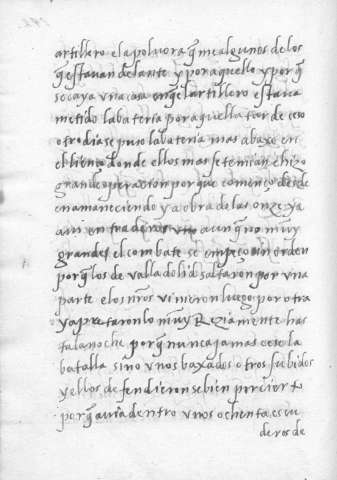 artillero e la polvora q̃ me algunos de los
q̃ estavan delante y por aquello y por q̃
se caya una casa en q̃ el artillero estava
metido la bateria por aquella tarde ceso
otro dia se puso la bateria mas abaxo en
el lienço donde ellos mas se temian e hizo
grande operacion porque començo desde
en amaneciendo y a obra de las onze ya
avia entraderos aunq̃ no muy
grandes el combate se empeço sin orden
por q̃ los de valladolid saltaron por una
parte e los nr̃os vinieron luego por otra
y apretaronlo muy Reziamente has
ta la noche porq̃ nunca jamas ceso la
batalla sino unos baxados otros subidos
y ellos defendieronse bien por cierto
porq̃ avia dentro unos ochenta escu
deros de